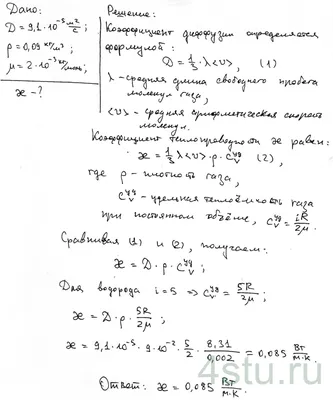 Дано:
D = 9,1·10⁻⁵ м²/с
ρ = 0,09 кг/м³
μ = 2·10⁻³ кг/моль
ϰ - ?
Решение:
Коэффициент диффузии определяется
формулой:
D = 1/3 · λ<υ>, (1)
λ - средняя длина свободного пробега
молекул газа,
<υ> - средняя арифметическая скорость
молекул.
Коэффициент теплопроводности ϰ равен:
ϰ = 1/3 λ<υ>·ρ·c_v^уд (2),
где ρ - плотность газа,
c_v^уд - удельная теплоёмкость газа
при постоянном объёме, c_v^уд = iR/2μ;
Сравнивая (1) и (2), получаем:
ϰ = D·ρ·c_v^уд;
Для водорода i = 5 => c_v^уд = 5R/2μ;
ϰ = D·ρ·5R/2μ;
ϰ = 9,1·10⁻⁵·9·10⁻²·5/2·8,31/0,002 = 0,085 Вт/м·К.
Ответ: ϰ = 0,085 Вт/м·К.
4stu.ru